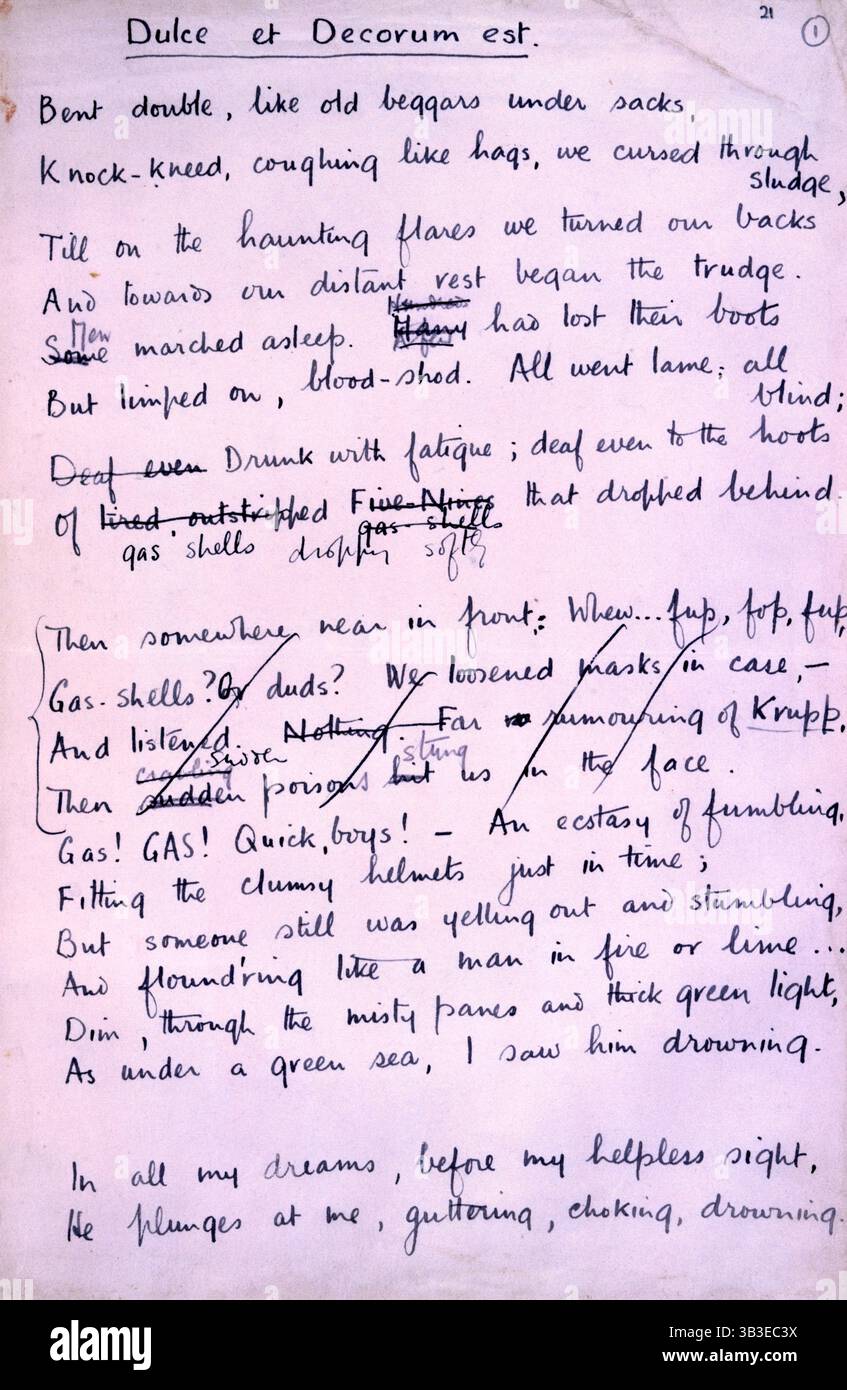 21
1
Dulce et Decorum est.
Bent double, like old beggars under sacks,
Knock-kneed, coughing like hags, we cursed through
sludge,
Till on the haunting flares we turned our backs
And towards our distant rest began the trudge.
Hundreds
Men
Some marched asleep. Many had lost their boots
But limped on, blood-shod. All went lame; all
blind;
Deaf even Drunk with fatigue; deaf even to the hoots
Of tired, outstripped Five-Nines that dropped behind.
gas shells
gas shells dropping softly
Then somewhere near in front: Whew... fup, fop, fup,
Gas-shells? Or duds? We loosened masks in case,—
And listened. Nothing. Far rumouring of Krupp.
crawling sudden stung
Then sudden poisons hit us in the face.
Gas! GAS! Quick, boys! — An ecstasy of fumbling,
Fitting the clumsy helmets just in time;
But someone still was yelling out and stumbling,
And flound'ring like a man in fire or lime...
Dim, through the misty panes and thick green light,
As under a green sea, I saw him drowning.
In all my dreams, before my helpless sight,
He plunges at me, guttering, choking, drowning.
alamy
Image ID: 3B3EC3X
www.alamy.com